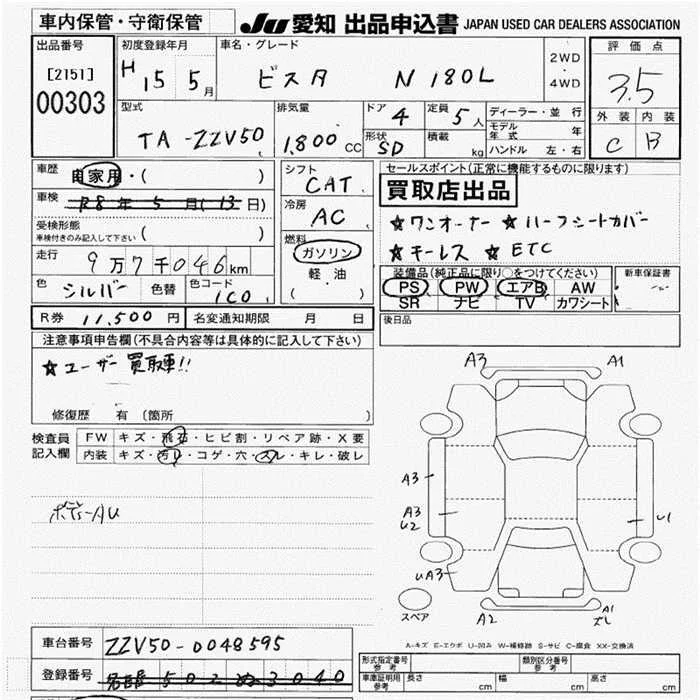 車内保管・守衛保管 JU 愛知 出品申込書 JAPAN USED CAR DEALERS ASSOCIATION
出品番号 初度登録年月 車名・グレード 評価点
[2151] H 15 5月 ビスタ N 180L 2WD・4WD 3.5
00303 型式 排気量 ドア 4 定員 5人 ディーラー・並行 外装 内装
TA-ZZV50 1,800CC 形状 SD 積載 kg モデル年式 年 C B
ハンドル 左・右
車歴 自家用・( ) シフト CAT セールスポイント(正常に機能するものに限ります)
車検 R8年5月(13日) 冷房 AC 買取店出品
受検形態 ( ) ☆ワンオーナー ☆ハーフシートカバー
車検付きのみ記入して下さい 燃料 ☆キーレス ☆ETC
走行 9万7千046km ガソリン 装備品(純正品に限り○をつけてください) 新車保証書
色 シルバー 色替 色コード 1C0 軽油 ( ) PS PW エアB AW
SR ナビ TV カワシート
R券 11,500円 名変通知期限 月 日 後日品
注意事項申告欄(不具合内容等は具体的に記入して下さい)
☆ユーザー買取車!!
修復歴 有 (箇所 )
検査員記入欄 FW キズ・飛石・ヒビ割・リペア跡・X要
内装 キズ・汚レ・コゲ・穴・スレ・キレ・破レ
ボディーAU
A3 A1
A3
A3 U2 U1
UA3
スペア A2 A1
A-キズ E-エクボ U-凹み W-補修跡 S-サビ C-腐食 XX-交換済
車台番号 ZZV50-0048595
登録番号 名古屋 502 ぬ 3040
型式指定番号 参考 類別区分番号 参考
車庫証明用 参考 長さ cm 幅 cm 高さ cm